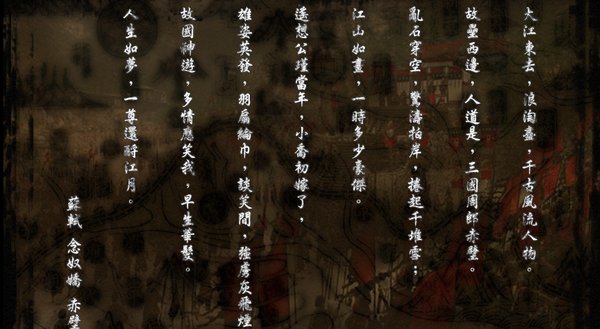 大江東去，浪淘盡，千古風流人物。
故壘西邊，人道是，三國周郎赤壁。
亂石穿空，驚濤拍岸，捲起千堆雪；
江山如畫，一時多少豪傑。
遙想公瑾當年，小喬初嫁了，
雄姿英發，羽扇綸巾，談笑間，強虜灰飛煙
故國神遊，多情應笑我，早生華髮。
人生如夢，一尊還酹江月。
蘇軾 念奴嬌 赤壁